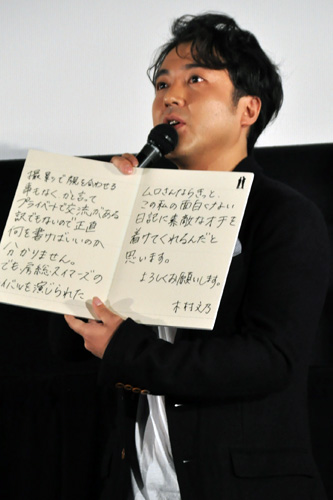 撮影で顔を合わせる
事もなくかと言って
プライベートで交流がある
訳でもないので正直
何を書けばいいのか
分かりません。
でも房総スイマーズの
イベルを演じられた
ムロさんならきっと、
この私の面白くない
日記に素敵なオチを
着けてくれるんだと
思います。
よろしくお願いします。
木村文乃